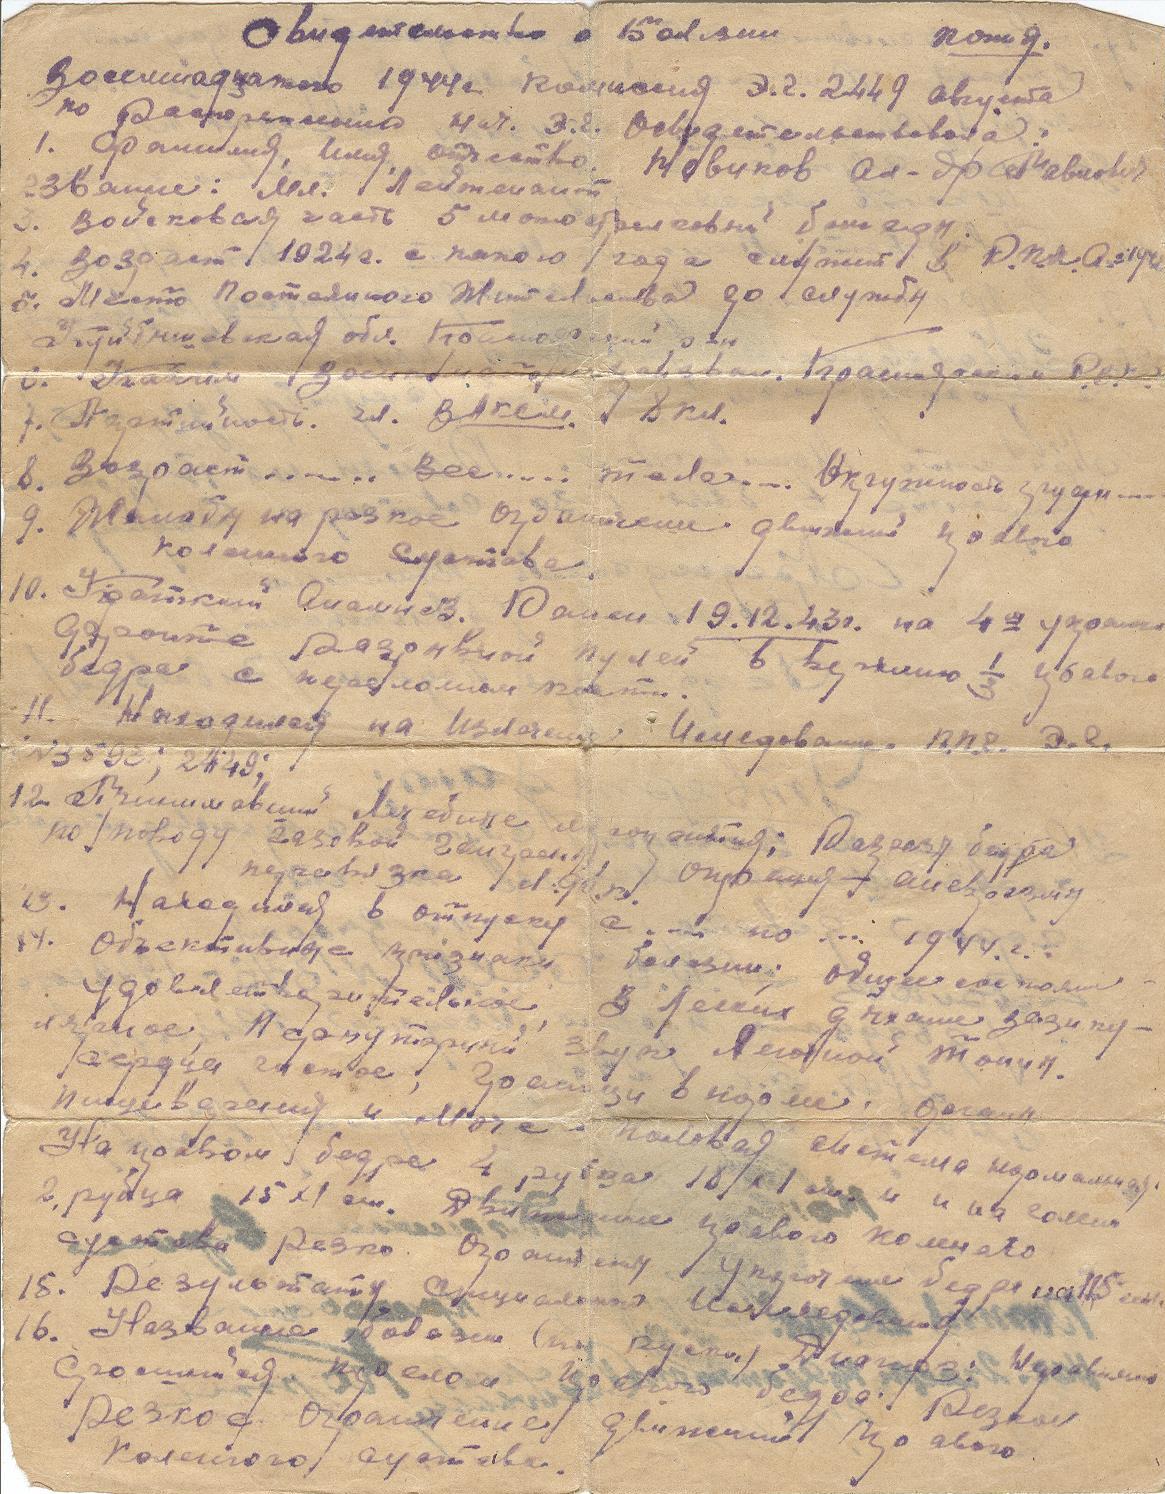 Свидетельство о Болезни копия.
Восемнадцатого 1944г. Комиссия Э.г. 2449 августа
по Распоряжению нач. Э.г. Освидетельствовала:
1. Фамилия, Имя, отчество. Новиков Ал-др Павлович
2 Звание: Мл. Лейтенант
3. Войсковая часть 5 мотострелковый бригады.
4. Возраст 1924г. с какого года служит в Р.К.К.А.
5. Место Постоянного Жительства до службы
Куйбышевская обл. Красноярский р-он
6. Каким Военкоматом призван. Красноярским Р.В.К.
7. Партийность. чл. ВЛКСМ.
8. Возраст....... Вес..... тела.... Окружность груди....
9. Жалобы на резкое Ограничение движений правого
коленного сустава.
10. Краткий Анамнез. Ранен 19.12.43г. на 4м украин
фронте Разрывной пулей в верхнюю 1/3 правого
бедра с переломом кости.
11. Находился на Излечении Исследование. П.П.Г. Э.Г.
2449;
12. Применявший Лечебные Разрез бедра
по поводу газовой гангрены
перевязка
13. Находился в отпуску с.... по... 1944.г.:
14. Объективные признаки болезни: Общее состояние
удовлетворительное, В Легких дыхание везику-
лярное, Перкуторный звук Легочной Тонны.
Сердца чистое, Границы в норме. органы
пищеварения и Моче-половая система нормальная.
На правом бедре 4 рубца 18х1 см. и на голени
2 рубца 15х1 см. Движение правого коленного
сустава Резко Ограничены Укрочение бедра на см.
15. Результаты специальных Исследований
16. Название болезни (по Русски) Диагноз: Неправильно
сросшийся перелом правого бедра. Резкое
Резкое Ограничение движений правого
коленного сустава.